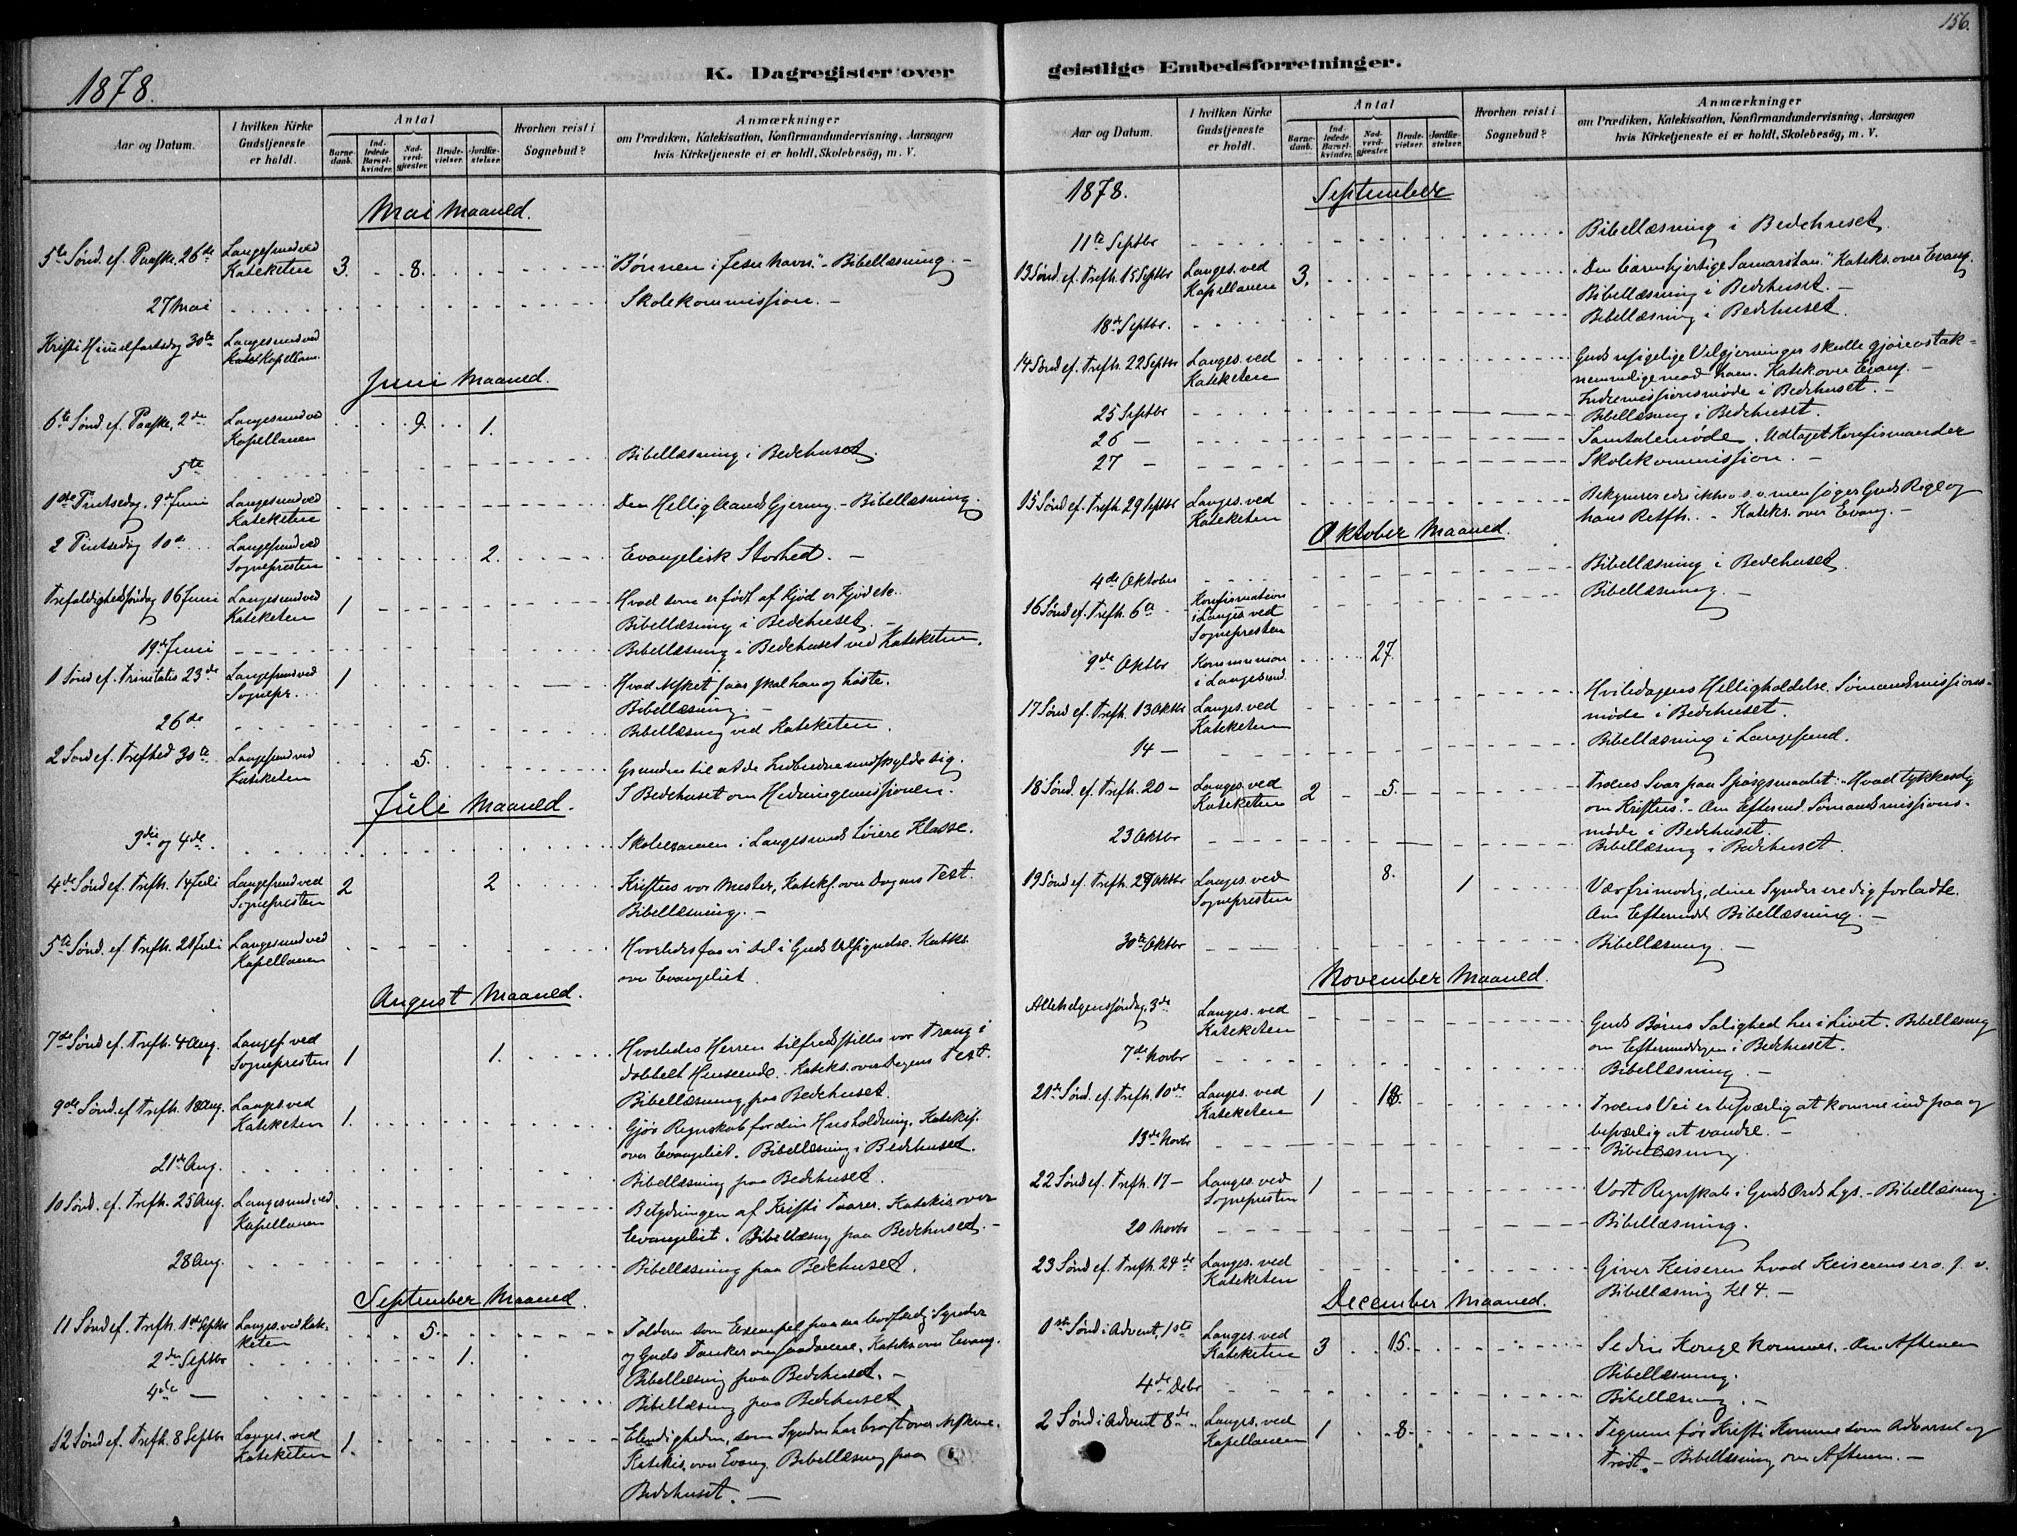 156.
1878.
K. Dagregister over geistlige Embedsforretninger.
Aar og Datum.
I hvilken Kirke Gudstjeneste er holdt.
Antal
Barnedaab.
Indledede Barselkvinder.
Nadverdgjester.
Brudevielser.
Jordfæstelser.
Hvorhen reist i Sognebud?
Anmærkninger
om Prædiken, Katekisation, Konfirmandundervisning, Aarsagen
hvis Kirketjeneste ei er holdt, Skolebesög, m. V.
Mai Maaned.
5te Sønd. ef. Paaske, 26de Langesund ved Kateketen 3. 8. "Bønnen i Jesu Navn." - Bibellæsning. -
27 Mai Skolekommission. -
Kristi Himmelfartsdag 30te Langesund ved Kapellan.
Juni Maaned.
6te Sønd. ef. Paaske, 2de Langesund ved Kapellanen 9. 1.
5te Bibellæsning i Bedehuset.
1ste Pintsedag, 9de Juni Langesund ved Kateketen Den Helligaands Gjerning. - Bibellæsning.
2 Pintsedag 10de Langesund ved Sognepresten 2. Evangelisk Storhed. -
Trefoldighedssøndag 16 Juni Langesund ved Kateketen 1 Hvad som er født af Kjød er Kjød etc.
Bibellæsning i Bedehuset. -
19de Juni Bibellæsning i Bedehuset ved Kateketen.
1 Sønd. ef. Trinitatis 23de Langesund ved Sognepr. 1 Hvad Nsket saar skal han og høste.
Bibellæsning. -
26de Bibellæsning ved Kateketen.
2 Sønd. ef. Trefhed 30te Langesund ved Kateketen 5. Grunden til at de Indbudne undskylde sig.
I Bedehuset om Hedningemissionen.
Juli Maaned.
3die og 4de. Skoleexamen i Langesunds høiere Klasse.
4de Sønd. ef. Trefh. 14 Juli Langesund ved Sognepresten 2 2 Kristus vor Mester, Kateks. over Dagens Text.
Bibellæsning. -
5te Sønd. ef. Trefh. 21 Juli Langesund ved Kapellanen Hvorledes faa vi Del i Guds Velsignelse. Kateks.
over Evangeliet.
August Maaned.
7de Sønd. ef. Trefh. 4 Aug. Langes. ved Sognepresten 1 1. Hvorledes Herren tilfredsstiller vor Trang i
dobbelt Henseende. - Kateks. over Dagens Text.
Bibellæsning paa Bedehuset.
9de Sønd. ef. Trefh. 18 Aug. Langes. ved Kateketen 1. Gjør Regnskab for din Husholdning. Katekis.
over Evangeliet. Bibellæsning i Bedehuset.
21de Aug. Bibellæsning paa Bedehuset.
10 Sønd. ef. Trefh. 25 Aug. Langesund ved Kapellanen Betydningen af Kristi Taarer. Katekis. over
Evangeliet. Bibellæsning paa Bedehuset. -
28 Aug. Bibellæsning paa Bedehuset.
September Maaned.
11 Sønd. ef. Trefh. 1ste Septbr Langes. ved Kateketen 5. Tolderen som Exempel paa en bodfærdig Synder
og Guds Tanker om saadanne. Kateks. over Evang.
2den Septbr 1. Bibellæsning paa Bedehuset. -
4de - Bibellæsning paa Bedehuset.
12 Sønd. ef. Trefh. 8 Septbr Langes. ved Kateketen 1. Elendigheden, som Synden har bragt over Nskene.
Katekis. over Evang. Bibellæsning paa
Bedehuset. -
Aar og Datum.
I hvilken Kirke Gudstjeneste er holdt.
Antal
Barnedaab.
Indledede Barselkvinder.
Nadverdgjester.
Brudevielser.
Jordfæstelser.
Hvorhen reist i Sognebud?
Anmærkninger
om Prædiken, Katekisation, Konfirmandundervisning, Aarsagen
hvis Kirketjeneste ei er holdt, Skolebesög, m. V.
1878. September
11te Septbr Bibellæsning i Bedehuset.
13 Sønd. ef. Trefh. 15 Septbr Langes. ved Kapellanen 3. Den barmhjertige Samaritan." Kateks. over Evang.
Bibellæsning i Bedehuset. -
18de Septbr. Bibellæsning i Bedehuset.
14 Sønd. ef. Trefh. 22 Septbr Langes. ved Kateketen Guds usigelige Velgjerninger skulle gjøre os tak-
nemmelige mod ham. Katek. over Evang. -
Indremissionsmøde i Bedehuset. -
25 Septbr Bibellæsning i Bedehuset.
26 - Samtalemøde. Udtaget Konfirmander
27 - Skolekommission. -
15 Sønd. ef. Trefh. 29 Septbr Langes. ved Kateketen Bekymrer eder ikke o. s. v. men søger Guds Rige og
hans Retfh. - Kateks. over Evang. -
Oktober Maaned.
4de Oktober Bibellæsning i Bedehuset.
16 Sønd. ef. Trefh. 6te Konfirmation i Langes. ved Sognepresten Bibellæsning. -
9de Oktbr Kommunion i Langesund. 27.
17 Sønd. ef. Trefh. 13 Oktbr Langes. ved Kateketen Hviledagens Helligholdelse. Sømandsmissions-
møde i Bedehuset.
14 - Bibellæsning i Langesund.
18 Sønd. ef. Trefh. 20 - Langes. ved Kateketen 2 5. Troens Svar paa Spørgsmaalet: "Hvad tykkes dig
om Kristus". - Om Eftermd. Sømandsmissions-
møde i Bedehuset.
23 Oktbr Bibellæsning i Bedehuset.
19 Sønd. ef. Trefh. 27 Oktbr Langes. ved Sognepresten 8. 1 Vær frimodig, dine Synder ere dig forladte.
Om Eftermidd. Bibellæsning. -
30te Oktbr Bibellæsning. -
November Maaned.
Allehelgenssøndag, 3de Langes. ved Kateketen Guds Børns Salighed her i Livet. Bibellæsning
om Eftermiddagen i Bedehuset.
7de Novbr Bibellæsning. -
21de Sønd. ef. Trefh. 10de Langes. ved Kateketen 1 18. Troens Vei er besværlig at komme ind paa og
besværlig at vandre. -
13de Novbr Bibellæsning.
22 Sønd. ef. Trefh. 17 - Langes. ved Sognepresten 1 Vort Regnskab i Guds Ords Lys. - Bibellæsning.
20 Novbr Bibellæsning.
23 Sønd. ef. Trefh. 24de Langes. ved Kateketen Giver Keiseren hvad Keiserens er o. s. v.
Bibellæsning Kl 4. -
December Maaned.
1ste Sønd. i Advent, 1ste Langes. ved Kateketen 3 15. Se din Konge kommer. Om Aftenen
Bibellæsning.
4de Debr Bibellæsning. -
2 Sønd. i Advent 8de Langes. ved Kapellanen 1 8. Tegnene før Kristi Komme som Advarsel og
Trøst. - Bibellæsning om Aftenen. -